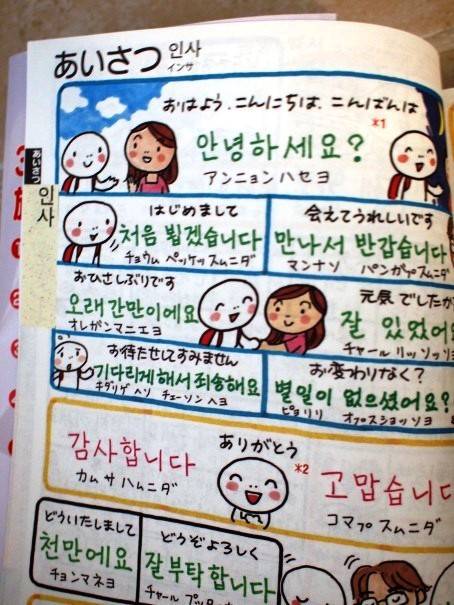 あいさつ 인사
インサ
おはよう、こんにちは、こんばんは
*1
안녕하세요?
アンニョンハセヨ
あいさつ
인사
はじめまして
처음 뵙겠습니다
チョウム ペッケッスムニダ
会えてうれしいです
만나서 반갑습니다
マンナソ パンガプスムニダ
おひさしぶりです
오래간만이에요
オレガンマニエヨ
元気でしたか
잘 있었어
チャール リッソッソ
お待たせしてすみません
기다리게해서 죄송해요
キダリゲ ヘソ チェーソン ヘヨ
お変わりなく?
별일이 없으셨어요?
ピョリリ オプスショッソヨ
ありがとう
감사합니다
カムサハムニダ
*2
고맙습니다
コマプスムニダ
どういたしまして
천만에요
チョンマネヨ
どうぞよろしく
잘부탁합니다
チャール